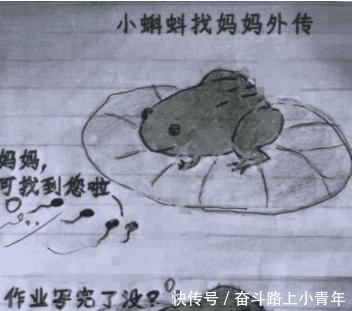 小蝌蚪找妈妈外传
妈妈,
可找到您啦
作业写完了没?
快传号/奋斗路上小青年